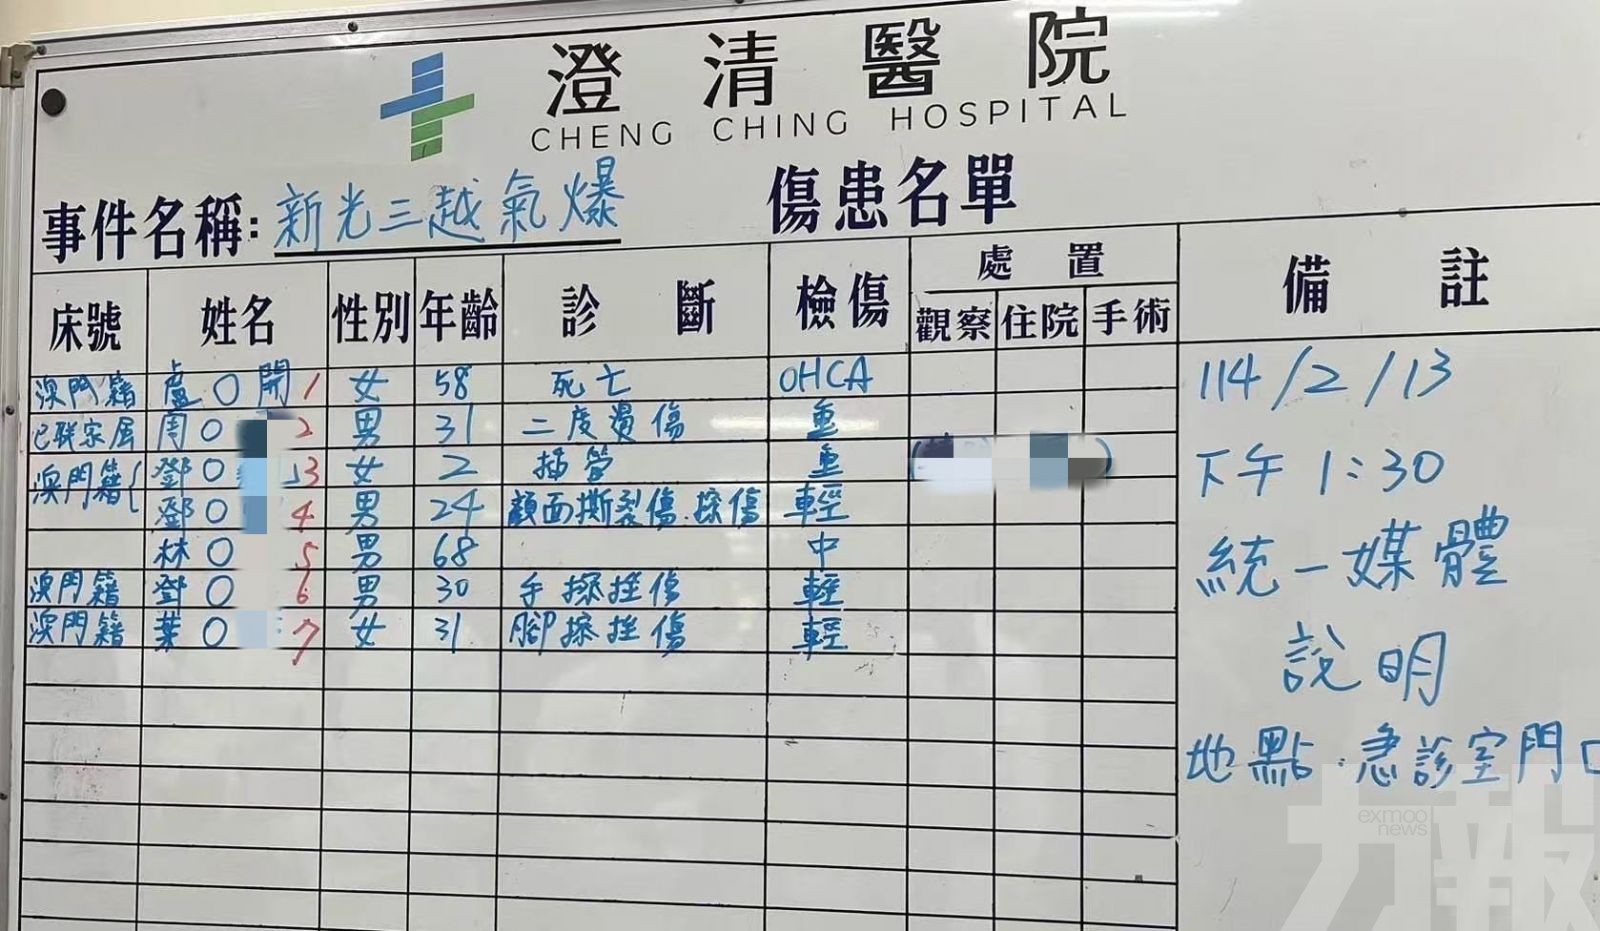 澄清醫院
CHENG CHING HOSPITAL
事件名稱: 新光三越氣爆 傷患名單
床號 姓名 性別 年齡 診斷 檢傷 處置 備註
觀察 住院 手術
澳門籍 盧○開 1 女 58 死亡 OHCA
已聯家屬 周○ 2 男 31 二度燙傷 重
澳門籍{ 鄧○ 3 女 2 插管 重 ( )
鄧○ 4 男 24 顏面撕裂傷.擦傷 輕
林○ 5 男 68 中
澳門籍 鄧○ 6 男 30 手擦挫傷 輕
澳門籍 葉○ 7 女 31 腳擦挫傷 輕
114/2/13
下午1:30
統一媒體
說明
地點:急診室門口
exmoo
news
力報